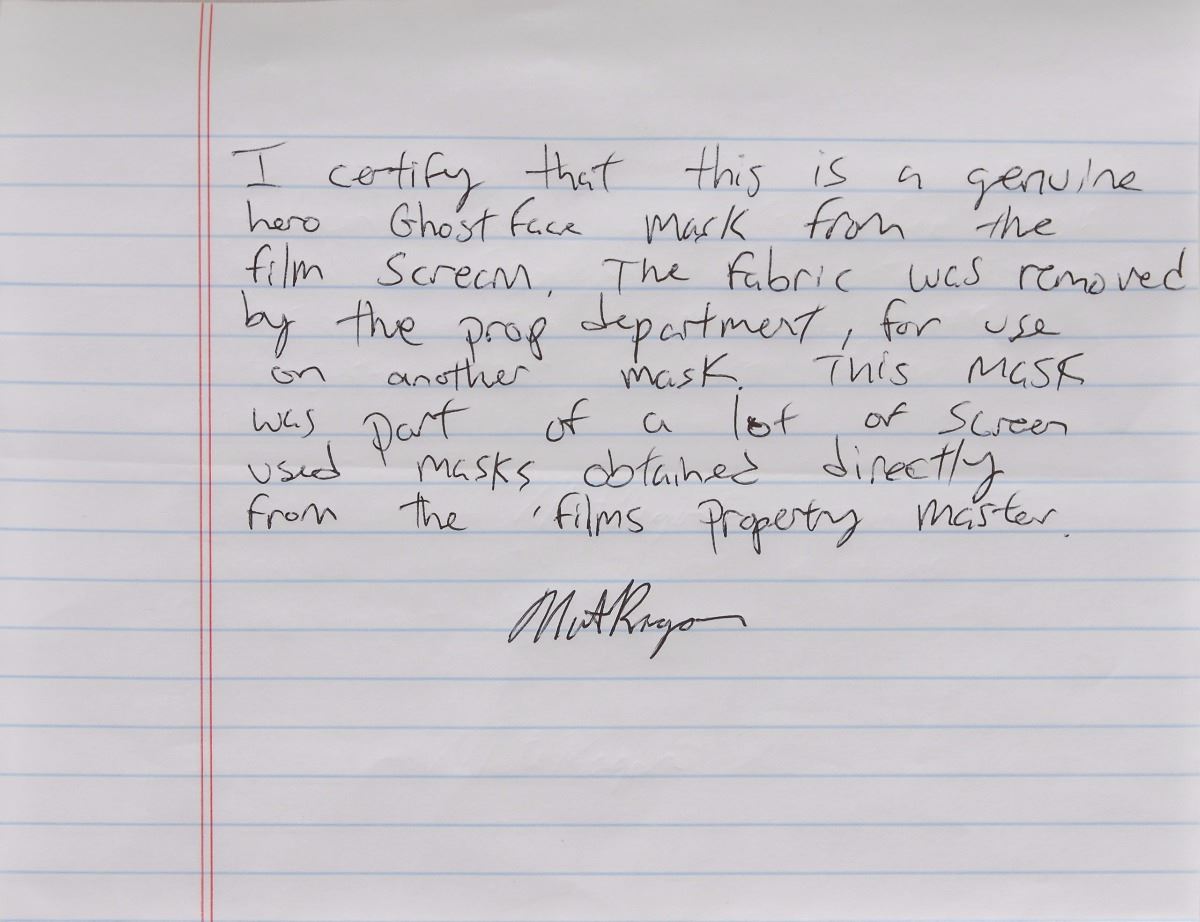 I certify that this is a genuine
hero Ghostface mask from the
film Scream. The fabric was removed
by the prop department, for use
on another mask. This mask
was part of a lot of screen
used masks obtained directly
from the films property master.